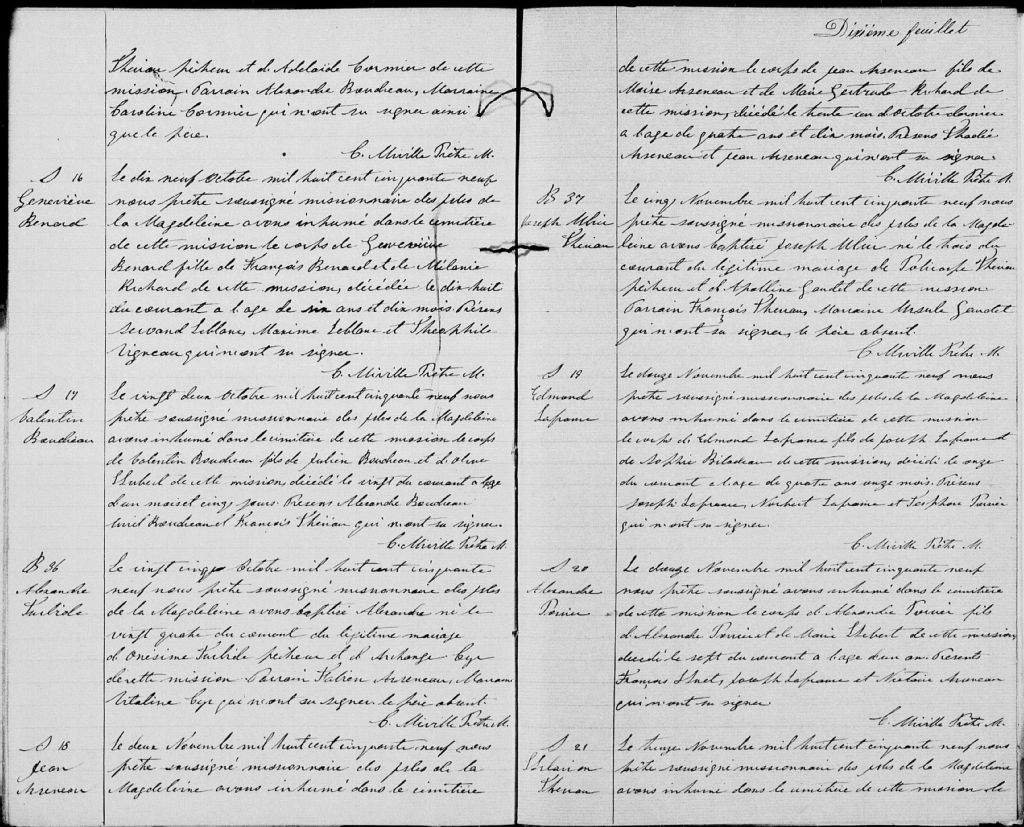 Theriau pêcheur et d'Adelaide Cormier de cette
mission, Parrain Alexandre Boudreau, Marraine
Caroline Cormier qui n'ont su signer ainsi
que le père.
C. Miville Prêtre M.
S 16
Geneviève
Renard
Le dix neuf Octobre mil huit cent cinquante neuf
nous prêtre soussigné missionnaire des isles de
la Magdeleine avons inhumé dans le cimitière
de cette mission le corps de Geneviève
Renard fille de François Renard et de Mélanie
Richard de cette mission, décédée le dix huit
du courant a l'age de six ans et dix mois. Présens
Servand Leblanc, Maxime Leblanc et Théophile
Vigneau qui n'ont su signer.
C. Miville Prêtre M.
S 17
Valentin
Boudreau
Le vingt deux Octobre mil huit cent cinquante neuf nous
prêtre soussigné missionnaire des isles de la Magdeleine
avons inhumé dans le cimitière de cette mission le corps
de Valentin Boudreau fils de Julien Boudreau et d'Olive
Hubert de cette mission, décédé le vingt du courant a l'age
d'un mois et cinq jours. Présens Alexandre Boudreau
Boudreau et François Thériau qui n'ont su signer.
C. Miville Prêtre M.
B 36
Alexandre
Turbide
Le vingt cinq Octobre mil huit cent cinquante
neuf nous prêtre soussigné missionnaire des isles
de la Magdeleine avons baptisé Alexandre né le
vingt quatre du courant du légitime mariage
d'Onesime Turbide pêcheur et d'Archange Cyr
de cette mission Parrain Fabien Arseneau, Marraine
Vitaline Cyr qui n'ont su signer, le père absent.
C. Miville Prêtre M.
S 18
Jean
Arseneau
Le deux Novembre mil huit cent cinquante neuf nous
prêtre soussigné missionnaire des isles de la
Magdeleine avons inhumé dans le cimitière
Dixième feuillet
de cette mission le corps de Jean Arseneau fils de
Moise Arseneau et de Marie Gertrude Richard de
cette mission, décédé le trente un d'octobre dernier
a l'age de quatre ans et dix mois. Présens Thadée
Arseneau et Jean Arseneau qui n'ont su signer
C. Miville Prêtre M.
B 37
Joseph Ulric
Theriau
Le cinq Novembre mil huit cent cinquante neuf nous
prêtre soussigné missionnaire des isles de la Magde-
leine avons baptisé Joseph Ulric né le trois du
courant du légitime mariage de Policarpe Theriau
pêcheur et d'Apolline Gaudet de cette mission
Parrain François Theriau, Marraine Ursule Gaudet
qui n'ont su signer, le père absent.
C. Miville Prêtre M.
S 19
Edmond
Lafrance
Le douze Novembre mil huit cent cinquante neuf nous
prêtre soussigné missionnaire des isles de la Magdeleine
avons inhumé dans le cimitière de cette mission
le corps d'Edmond Lafrance fils de Joseph Lafrance et
de Sophie Bilodeau de cette mission, décédé le onze
du courant a l'age de quatre ans onze mois. Présens
Joseph Lafrance, Norbert Lafrance et Poirier
qui n'ont su signer.
C. Miville Prêtre M.
S 20
Alexandre
Poirier
Le douze Novembre mil huit cent cinquante neuf
nous prêtre soussigné avons inhumé dans le cimitière
de cette mission le corps d'Alexandre Poirier fils
d'Alexandre Poirier et de Marie Hebert de cette mission
décédé le sept du courant a l'age d'un an. Présents
François Huet, Joseph Lafrance et Nectaire Arseneau
qui n'ont su signer
C. Miville Prêtre M.
S 21
Hilarion
Theriau
Le treize Novembre mil huit cent cinquante neuf nous
prêtre soussigné missionnaire des isles de la Magdeleine
avons inhumé dans le cimitière de cette mission de